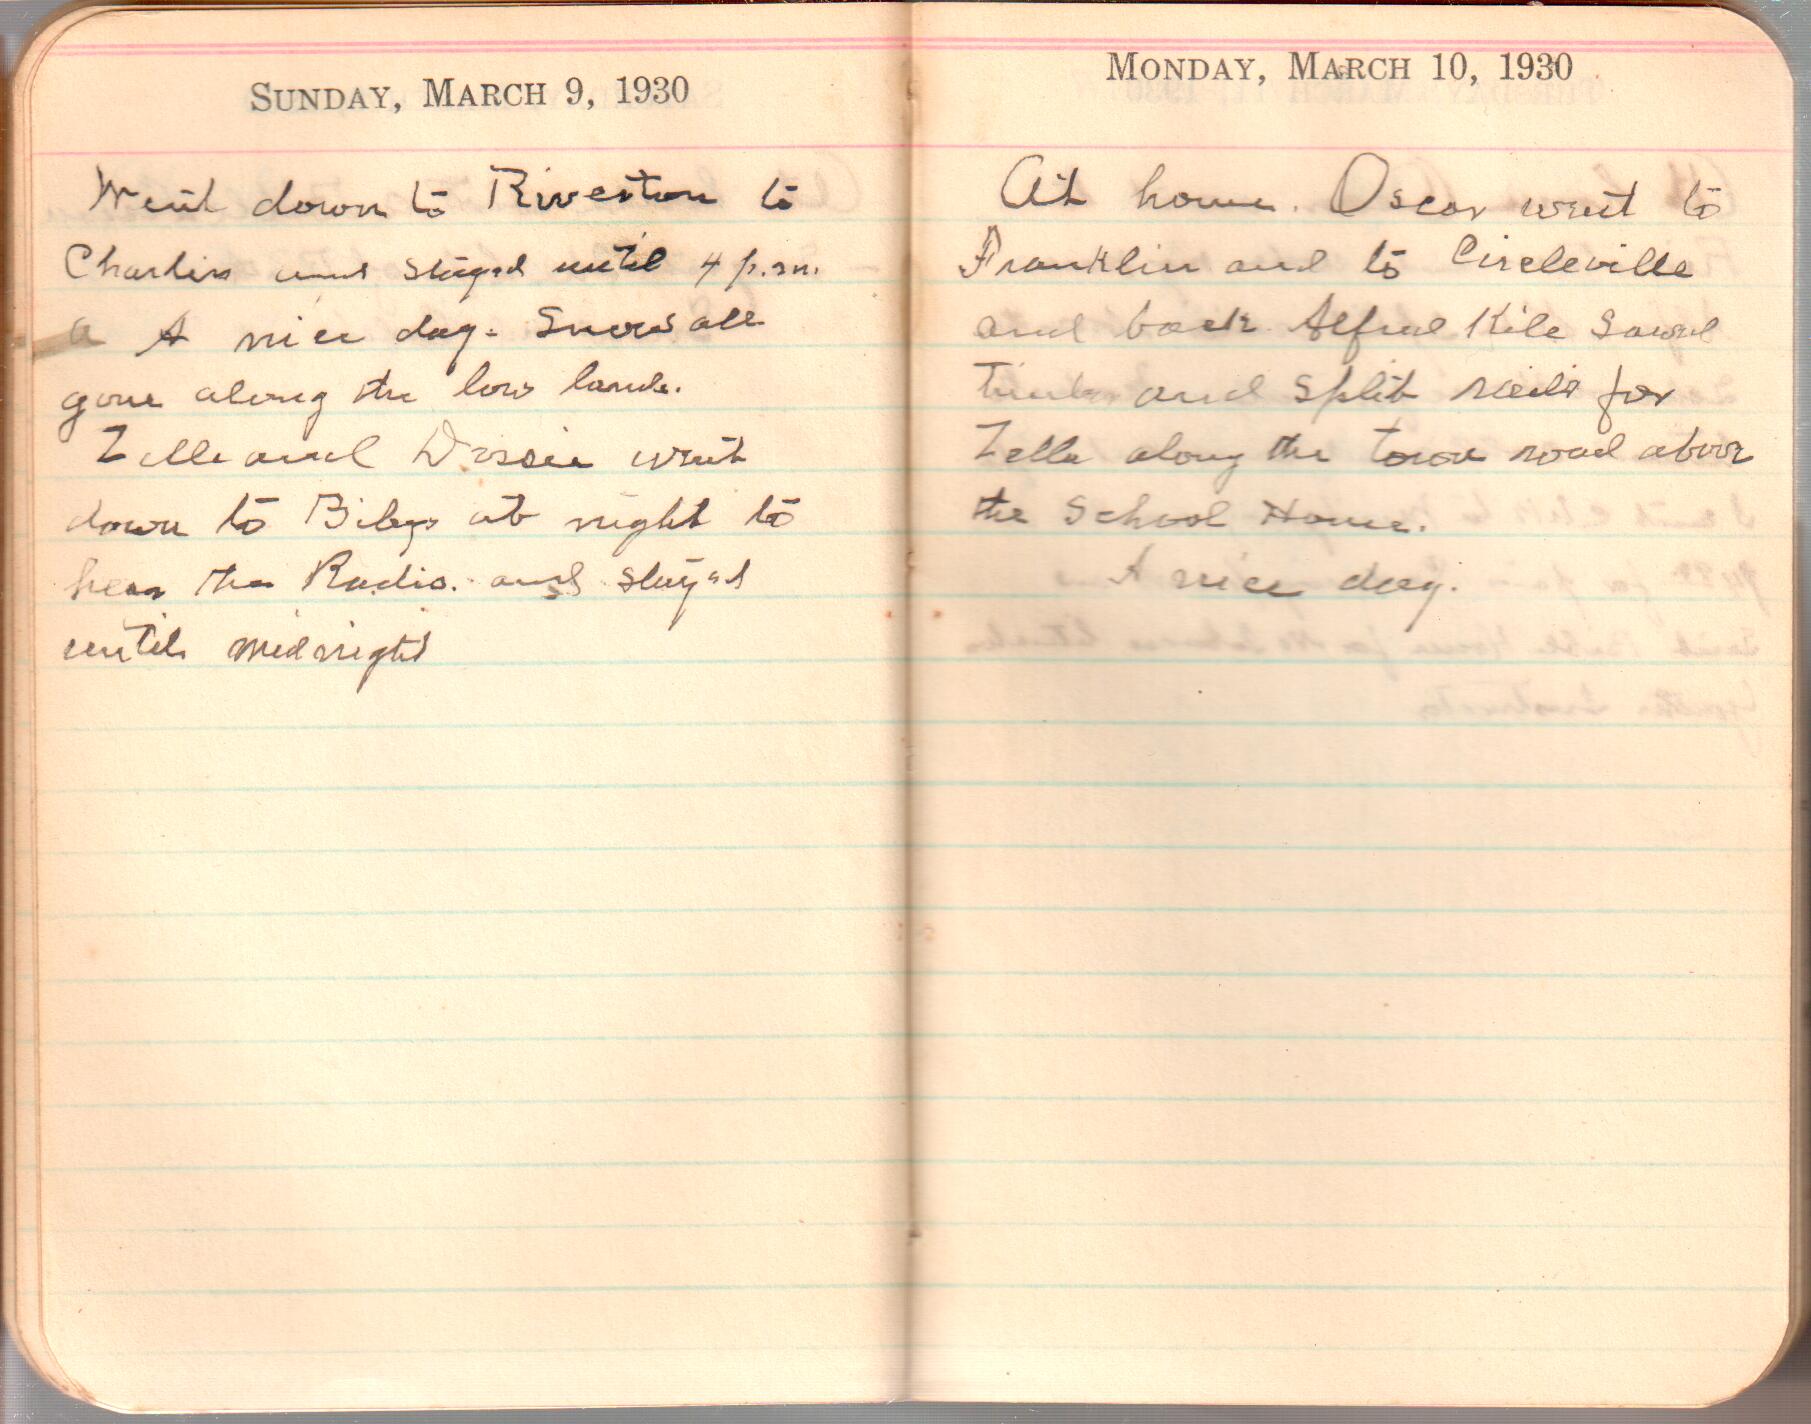 SUNDAY, MARCH 9, 1930
Went down to Riverton to
Charlies and stayed until 4 p.m.
a A nice day. Snow all
gone along the low lands.
Zella and Dessie went
down to Bibys at night to
hear the Radio. and stayed
until midnight
MONDAY, MARCH 10, 1930
At home. Oscar went to
Franklin and to Circleville
and back. Alfred Kile sawed
timber and split rails for
Zella along the town road above
the School House.
A nice day.